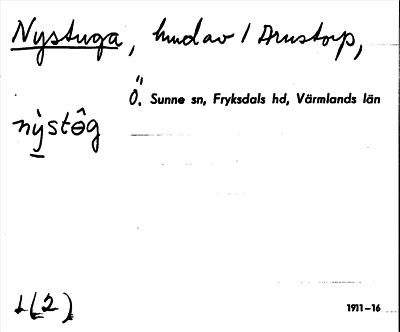 Nystuga, hmdav 1 Arnstorp,
Ö. Sunne sn, Fryksdals hd, Värmlands län
nỳstɵ̂g
L(2)
1911–16